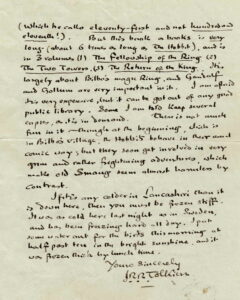 (which he calls eleventy-first and not hundred and
eleventh!). But this book or books is very
long (about 6 times as long as The Hobbit), and is
in 3 volumes (1) The Fellowship of the Ring (2)
The Two Towers (3) The Return of the King. It is
largely about Bilbo's magic Ring, and Gandalf
and Gollum are very important in it. I am afraid
it is very expensive, but it can be got out of any good
public library. I am told they have several
copies, as it is in demand. There is not much
fun in it – though at the beginning, which is
in Bilbo's village, the Hobbits behave in their usual
comic way; but they soon get involved in very
grim and rather frightening adventures, which
make old Smaug seem almost harmless by
contrast.
If it is any colder in Lancashire than it
is down here, then you must be frozen stiff.
It was as cold here last night as in Sweden,
and has been freezing hard all day. I put
some water out for the birds this morning at
half past ten in the bright sunshine, and it
was frozen thick by lunch time.
Yours sincerely
J.R.R. Tolkien